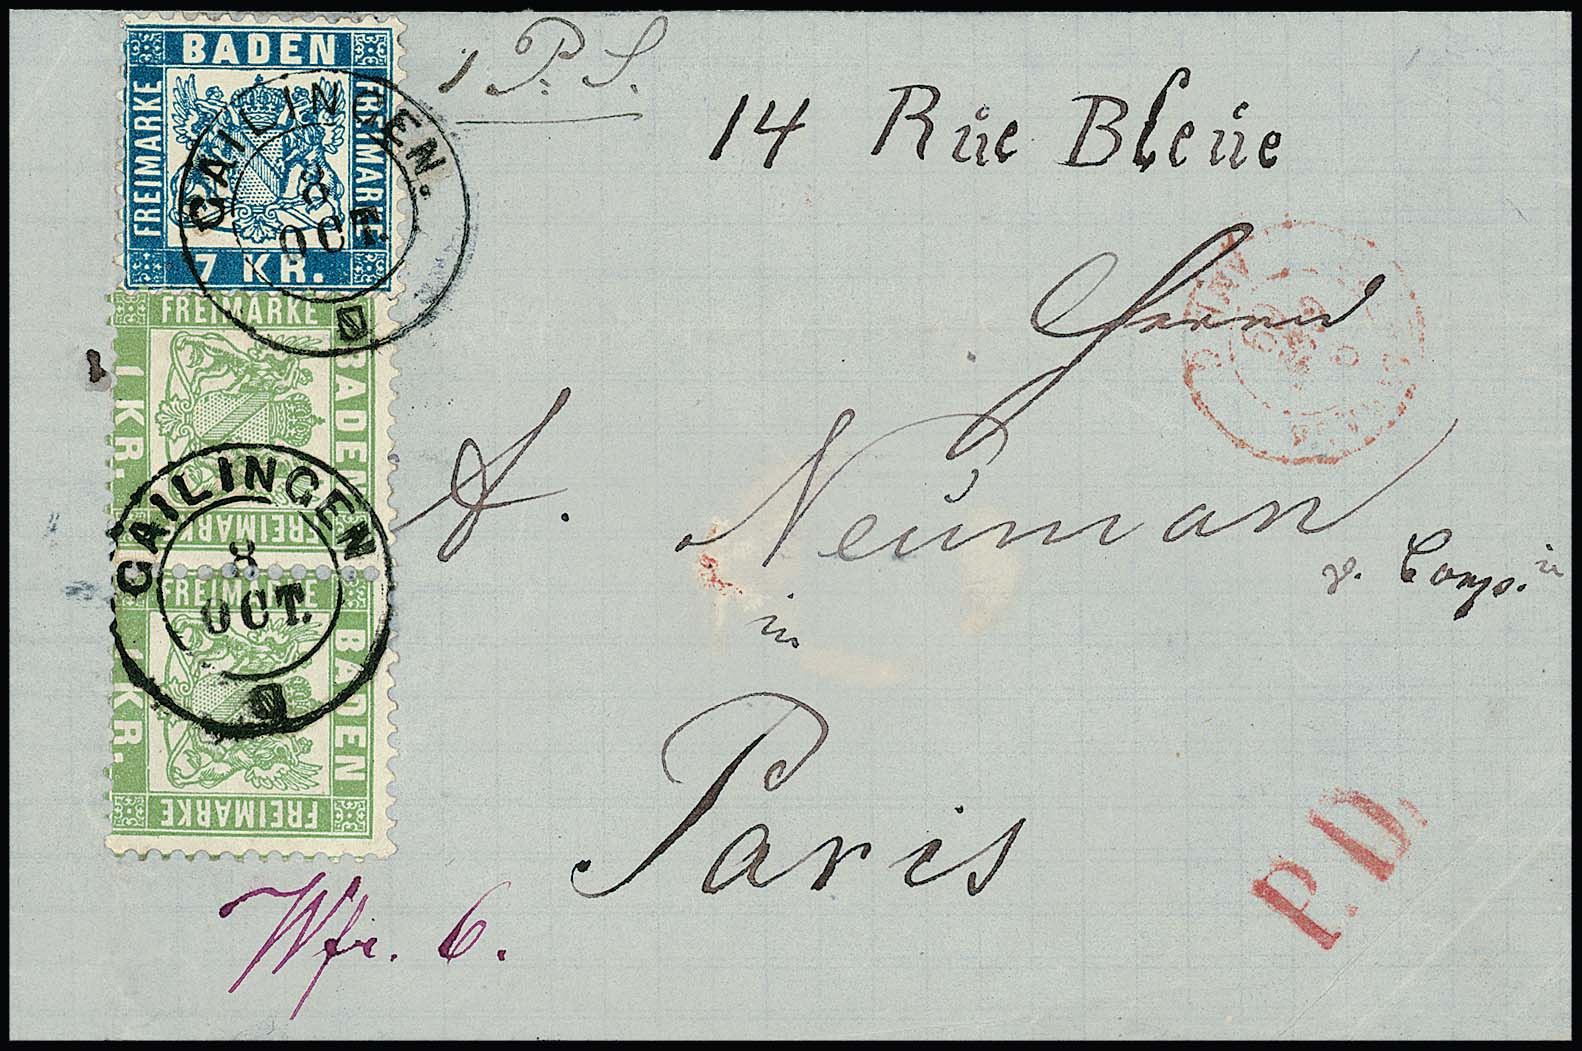 1 P. S.
14 Rue Bleüe
Herrn
A. Neüman
& Comp.
in
Paris
Wfr. 6.
P.D.
BADEN
FREIMARKE
FREIMARKE
7 KR.
FREIMARKE
BADEN
1 KR.
FREIMARKE
FREIMARKE
BADEN
1 KR.
FREIMARKE
GAILINGEN.
8
OCT.
GAILINGEN
8
OCT.